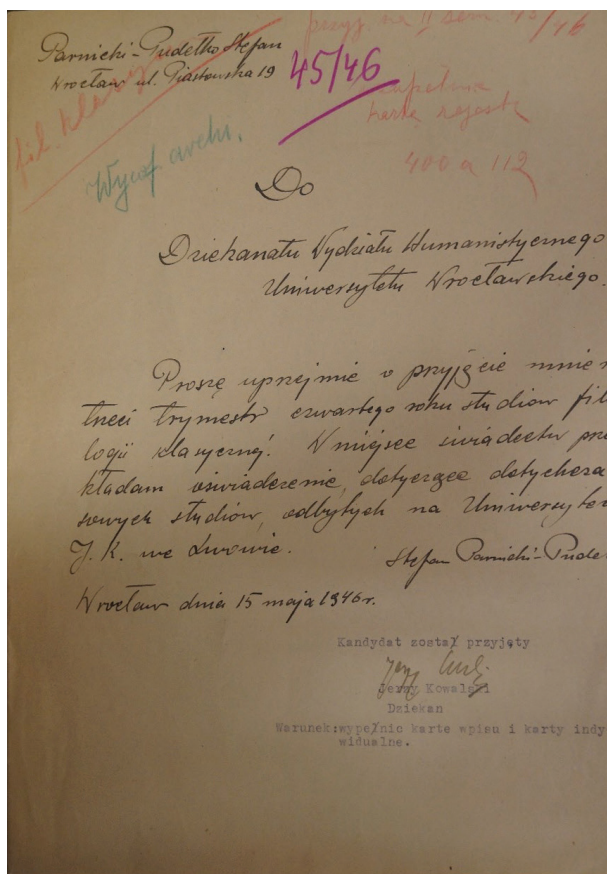 Parnicki-Pudełko Stefan
Wrocław ul. Piastowska 19
przyj. na II sem. 45/46
45/46
fil. klasycz
kartę rejestr
400 a 112
Wyział archi.
Do
Dziekanatu Wydziału Humanistycznego
Uniwersytetu Wrocławskiego.
Proszę uprzejmie o przyjęcie mnie n
trzeci trymestr czwartego roku studiów filo
logii klasycznej. W miejsce świadectw prze
kładam oświadczenie, dotyczące dotychcza
sowych studiów, odbytych na Uniwersytec
J. K. we Lwowie.
Stefan Parnicki-Pude
Wrocław dnia 15 maja 1946 r.
Kandydat został przyjęty
Jerzy Kowalski
Dziekan
Warunek:wypełnic karte wpisu i karty indy
widualne.